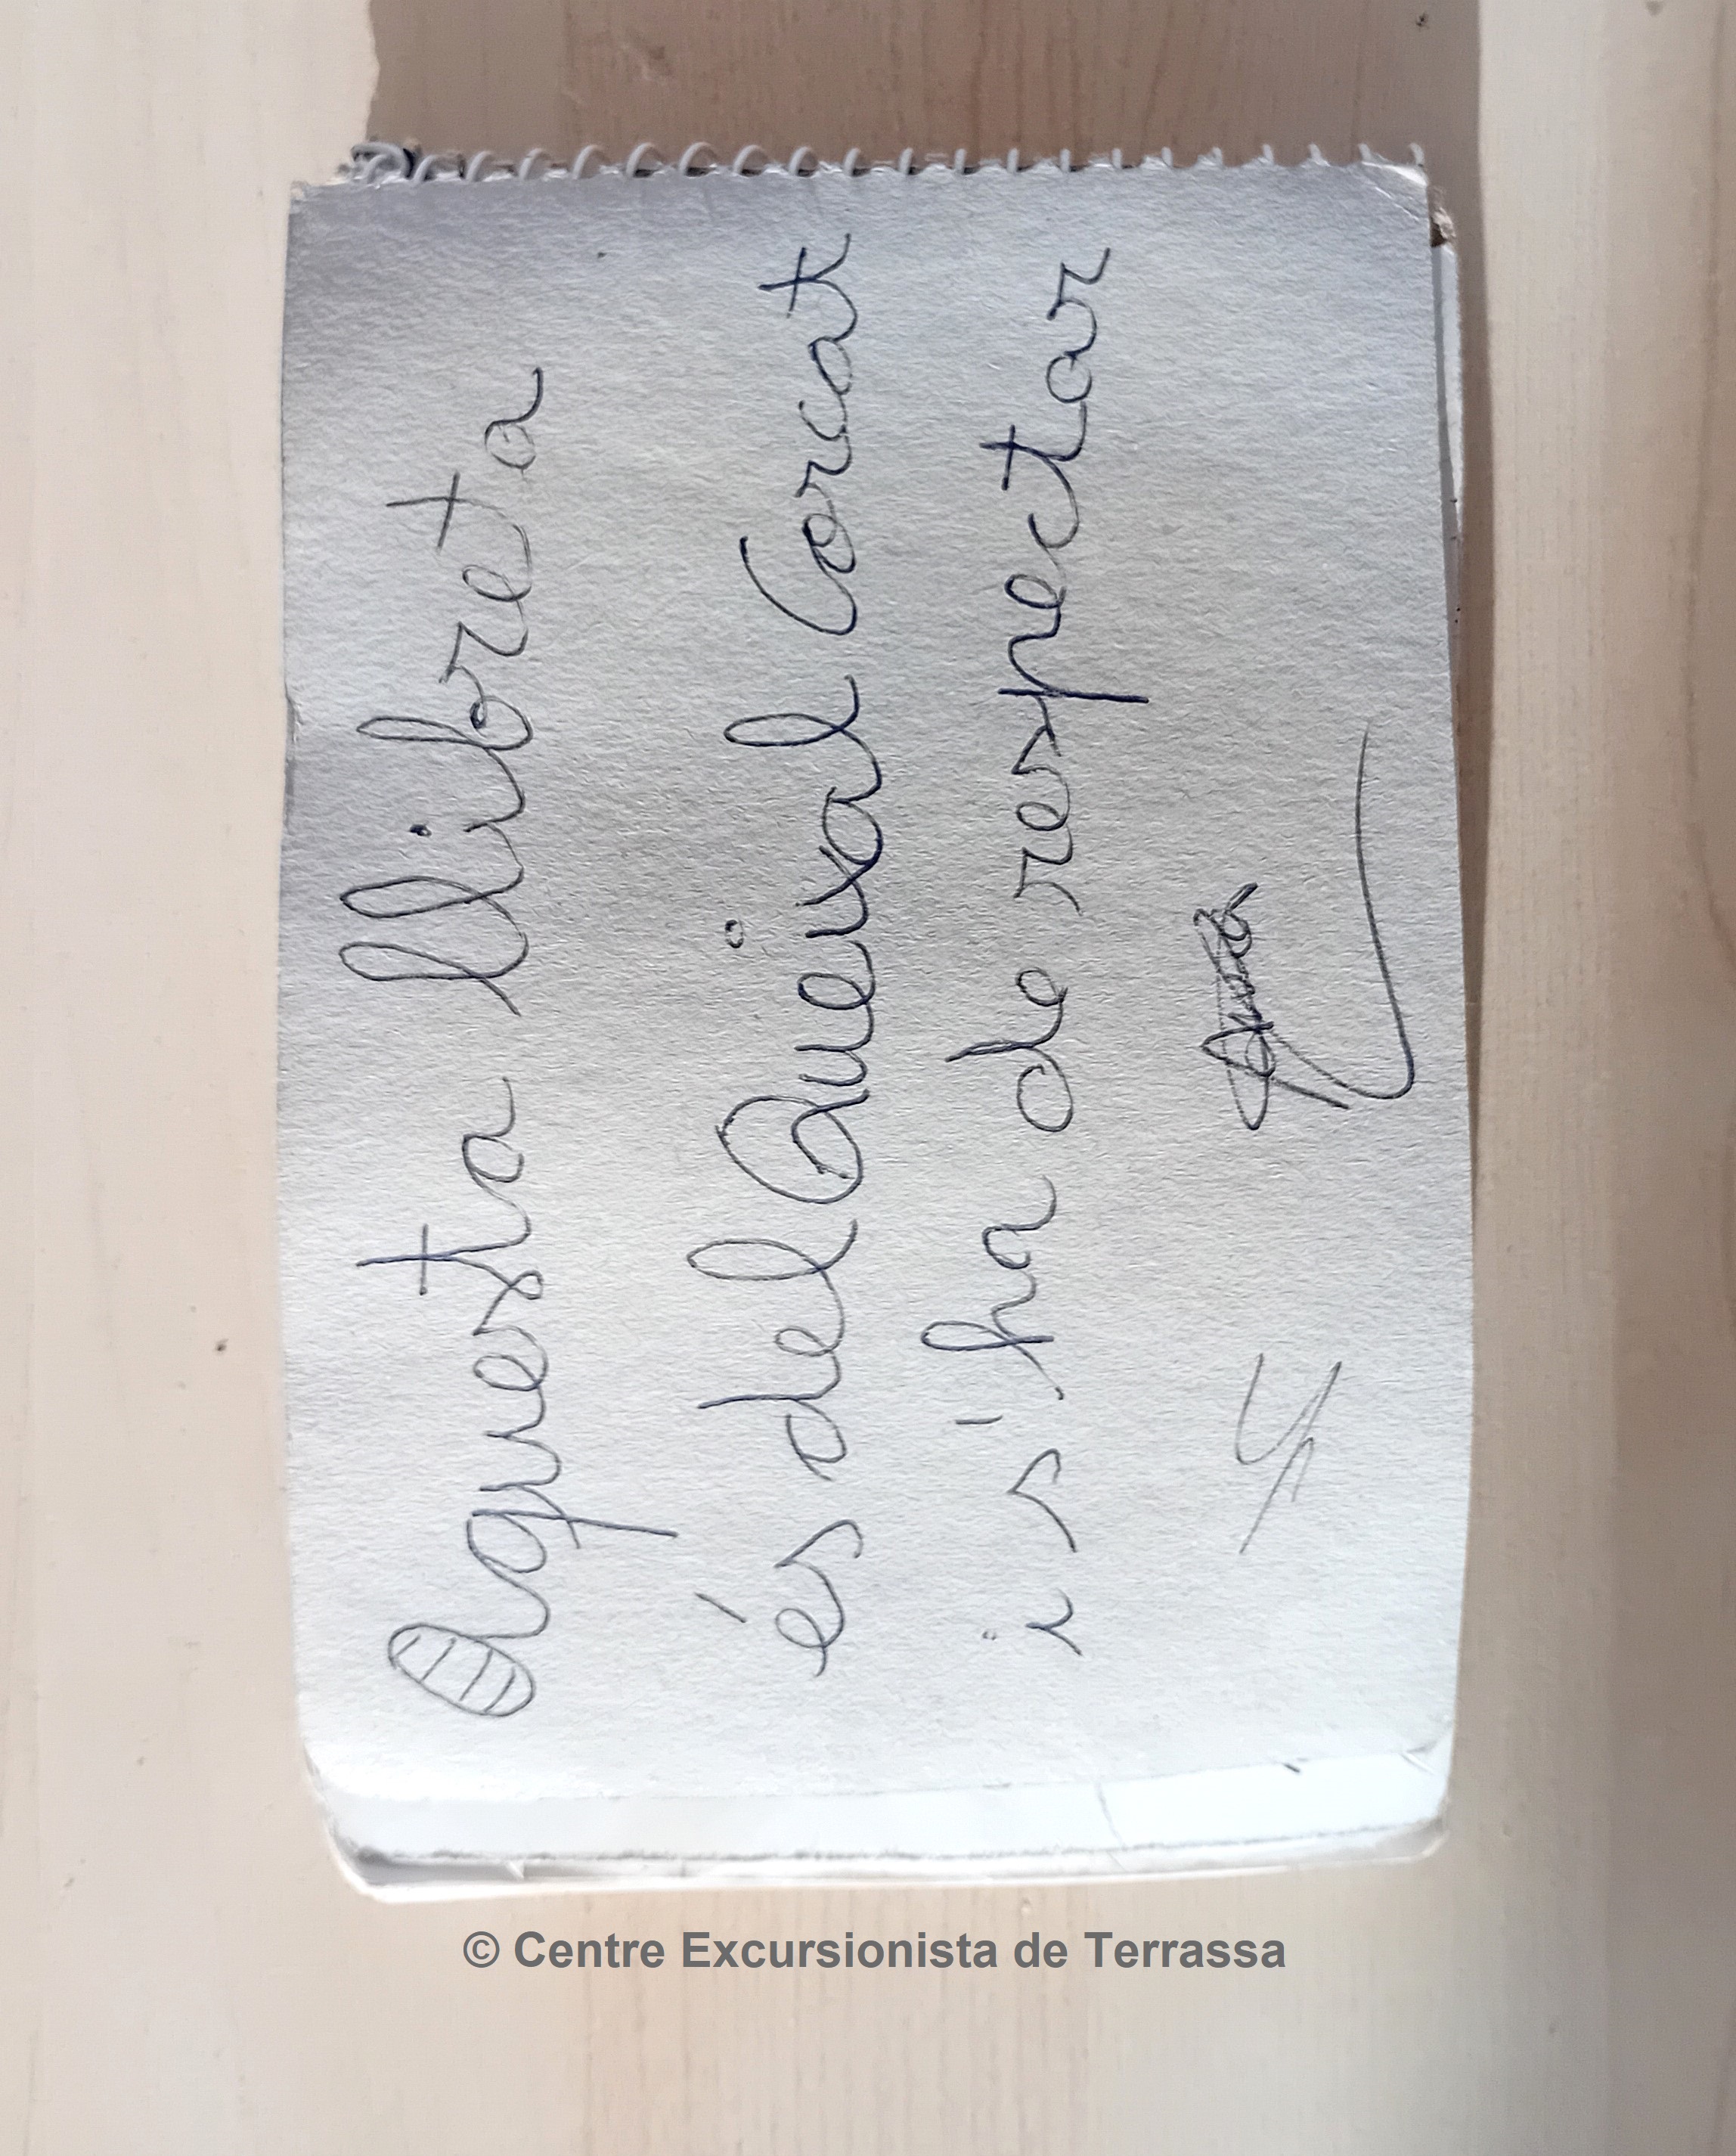 Aquesta llibreta
és del Queixal Corcat
i s'ha de respectar
© Centre Excursionista de Terrassa